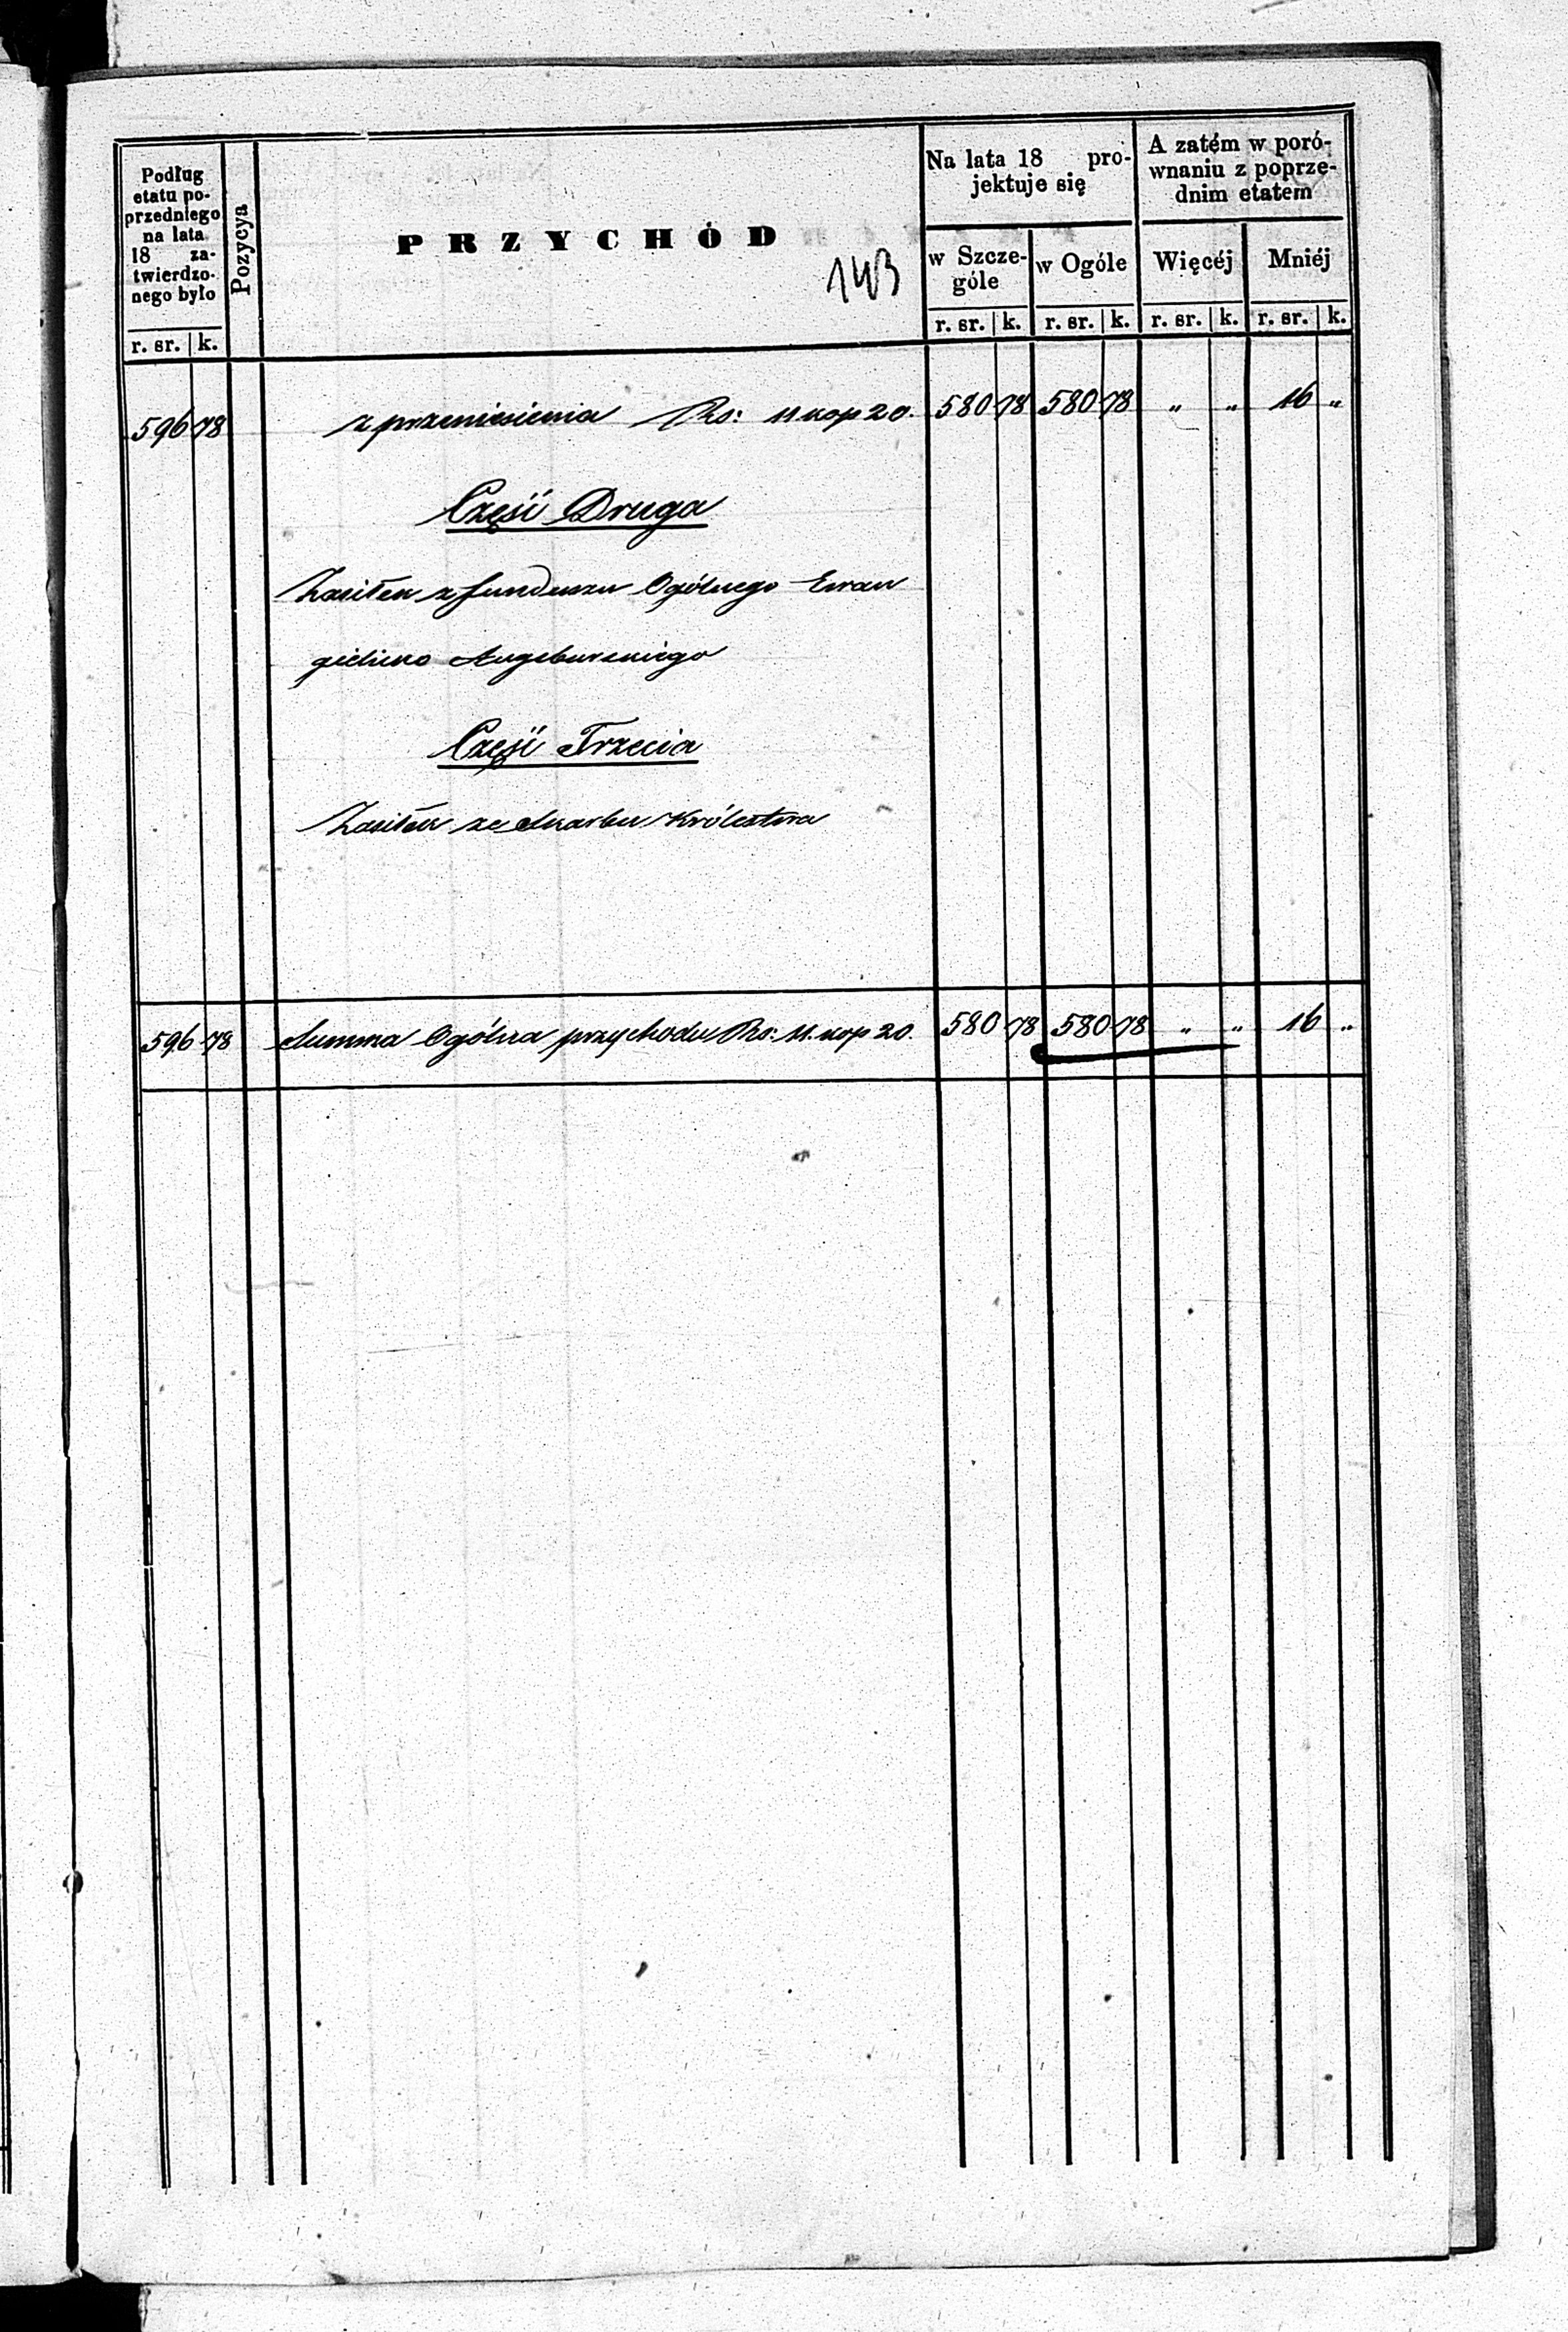 Podług
etatu po-
przedniego
na lata
18 za-
twierdzo-
nego było
Pozycya
PRZYCHÓD
143
Na lata 18 pro-
jektuje się
A zatém w poró-
wnaniu z poprze-
dnim etatem
w Szcze-
góle
w Ogóle
Więcéj
Mniéj
r. sr. k.
r. sr. k. r. sr. k. r. sr. k. r. sr. k.
596 78 z przeniesienia Rs: 11 kop 20. 580 78 580 78 " " 16 "
Część Druga
Zasiłek z funduszu Ogólnego Ewan
gielicko Augsburskiego
Część Trzecia
Zasiłek ze Skarbu Królestwa
596 78 Summa Ogólna przychodu Rs: 11. kop 20. 580 78 580 78 " " 16 "